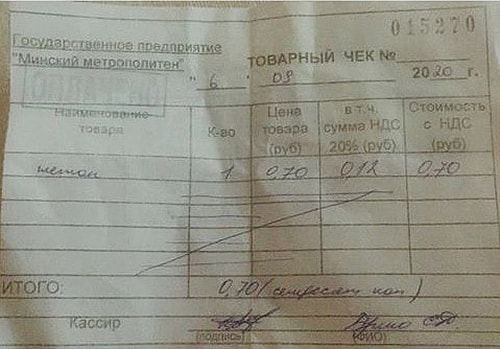 015270
Государственное предприятие
"Минский метрополитен"
ТОВАРНЫЙ ЧЕК №
"6" 09 2020 г.
ОПЛАЧЕНО
Наименование товара К-во Цена товара (руб) в т.ч. сумма НДС 20% (руб) Стоимость с НДС (руб)
жетон 1 0,70 0,12 0,70
ИТОГО: 0,70 (семьдесят коп)
Кассир
(подпись) (ФИО)